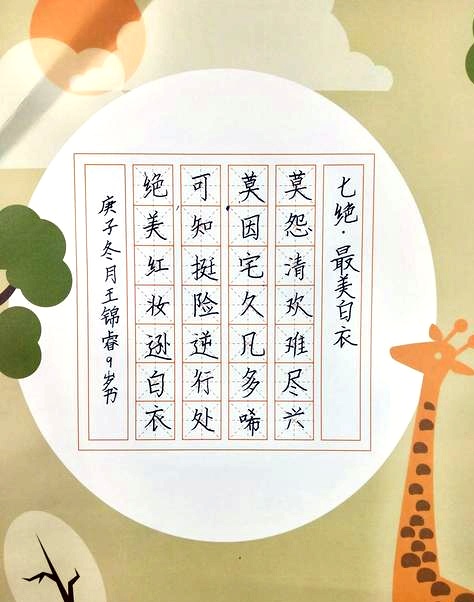 七绝·最美白衣
莫怨清欢难尽兴
莫因宅久凡多唏
可知挺险逆行处
绝美红妆逊白衣
庚子冬月王锦睿9岁书